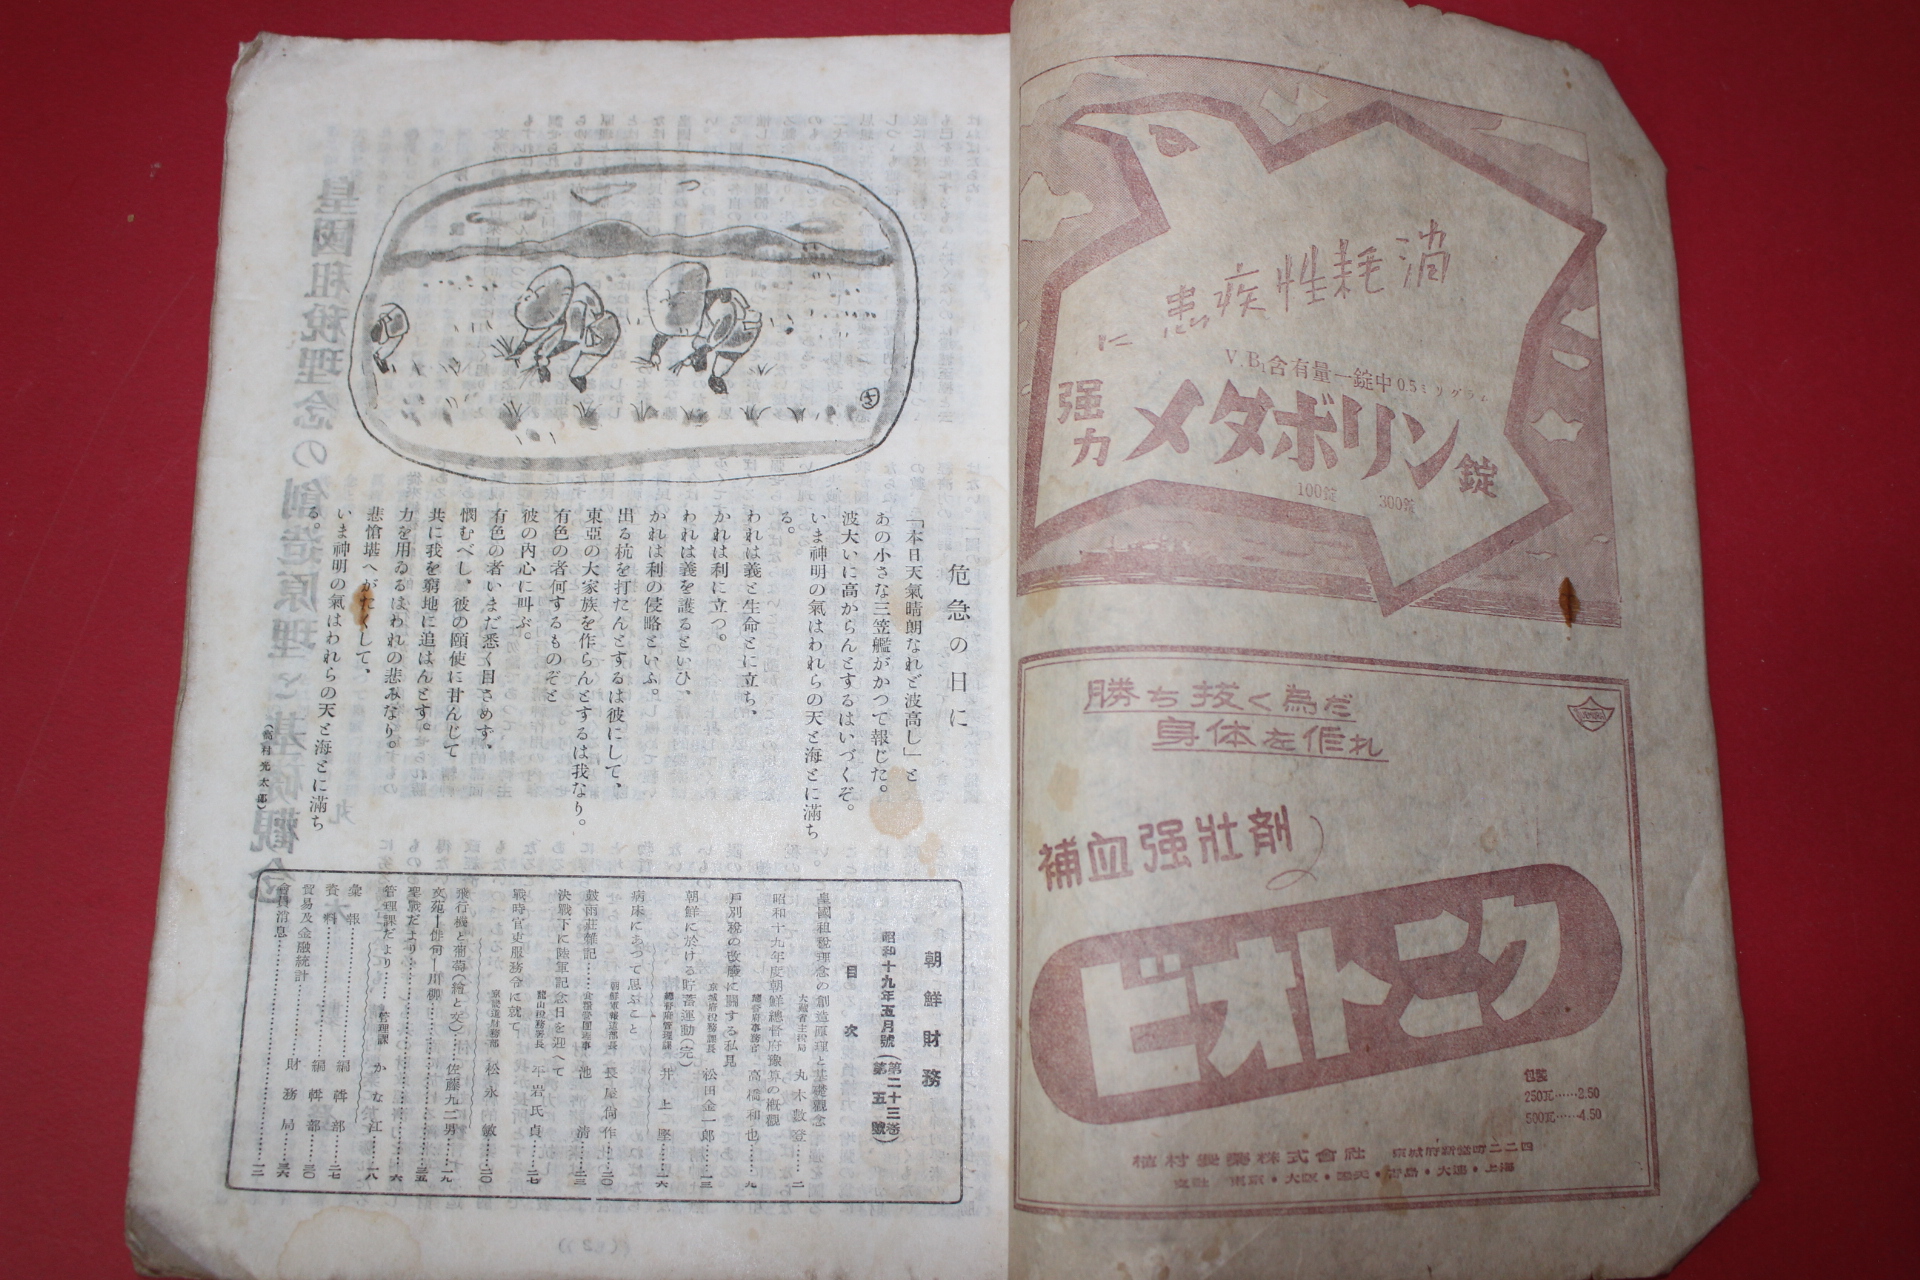 消耗性疾患
に
V.B₁含有量一錠中0.5ミリグラム
强力
メタボリン錠
100錠 300錠
勝ち抜く為だ
身体を作れ
補血强壯剤
ビオトニク
包装
250瓦……2.50
500瓦……4.50
株式會社
東京・大阪・・青島・大連・上海
危急の日に
「本日天氣晴朗なれど波高し」と
あの小さな三笠艦がかつて報じた。
波大いに高からんとするはいづくぞ。
いま神明の氣はわれらの天と海とに滿ち
る。
われは義と生命とに立ち、
かれは利に立つ。
われは義を護るといひ、
かれは利の侵略といふ。
出る杭を打たんとするは彼にして、
東亞の大家族を作らんとするは我なり。
有色の者何するものぞと
彼の内心に叫ぶ。
有色の者いまだ悉く目さめず、
憫むべし、彼の頤使に甘んじて
共に我を窮地に追はんとす。
力を用ゐるはわれの悲みなり。
悲愴堪へがたくして、
いま神明の氣はわれらの天と海とに滿ち
る。
(高村光太郎)
朝鮮財務
昭和十九年五月號(第二十三卷第五號)
目次
皇國租稅理念の創造原理と基礎觀念
大藏省主稅局 丸木數登…二
昭和十九年度朝鮮總督府豫算の槪觀
總督府事務官 高橋和也…九
戶別稅の改廢に關する私見
京城府稅務課長 松田金一郎…一三
朝鮮に於ける貯蓄運動(完)
總督府管理課 井上堅…一六
病床にあつて思ふこと
朝鮮軍報道部長 長屋尙作…二〇
鼓雨莊雜記 池淸…二三
決戰下に陸軍記念日を迎へて
龍山稅務署長 平岩氏貞…二七
戰時官吏服務令に就て
財務部 松永敏…三〇
飛行機と葡萄(繪と文)…佐藤九二男…一九
文苑―俳句―川柳…三五
聖戰だより…六
管理課だより…管理課 かな江…一八
彙報…編輯部…二七
資料…編輯部…三〇
貿易及金融統計…財務局…三六
會員消息…一二